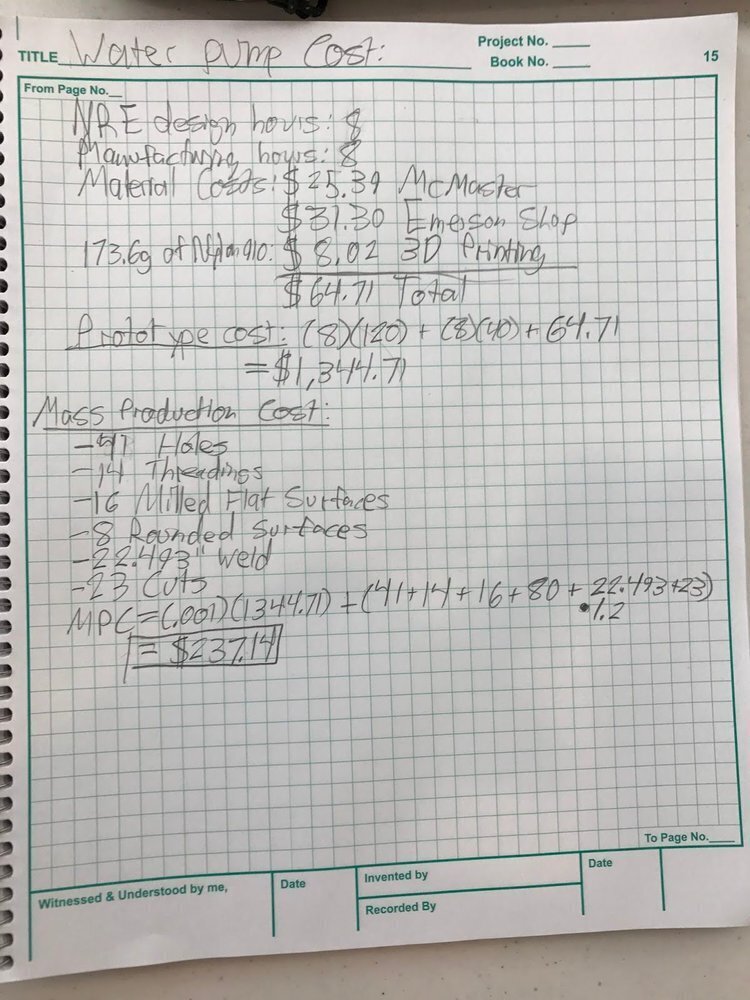 TITLE Water pump Cost:
Project No.
Book No.
15
From Page No.
NRE design hours: 8
Manufacturing hours: 8
Material Costs: $25.39 McMaster
$31.30 Emerson Shop
173.6g of Nylon 910: $ 8.02 3D Printing
$64.71 Total
Prototype cost: (8)(120) + (8)(40) + 64.71
= $1,344.71
Mass Production Cost:
-41 Holes
-14 Threadings
-16 Milled Flat Surfaces
-8 Rounded Surfaces
-22.493" weld
-23 Cuts
MPC = (.001)(1344.71) + (41+14+16+80+22.493+23)
•1.2
= $237.14
To Page No.
Witnessed & Understood by me,
Date
Invented by
Date
Recorded By